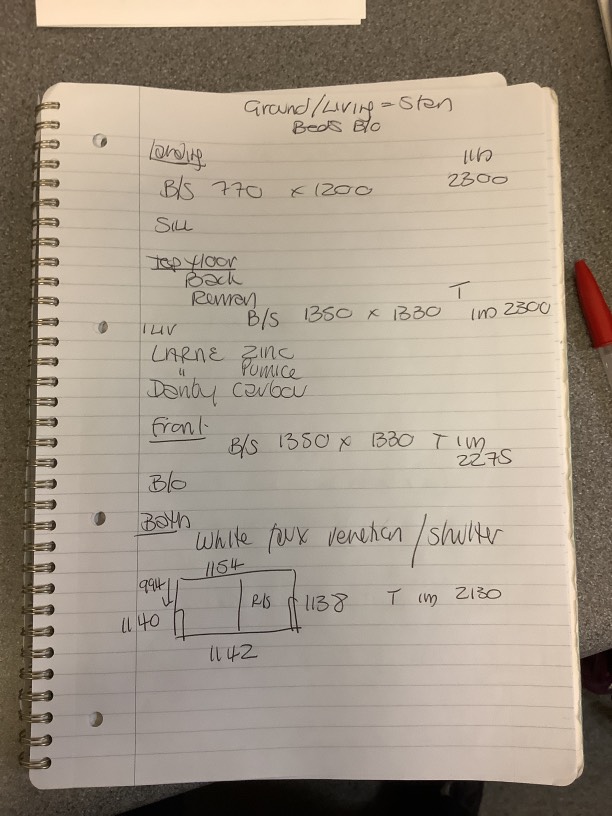 Ground/Living = Sten
Beds B/o
Landing
1m
B/S 770 x 1200 2300
Sill
Top floor
Back
T
B/S 1350 x 1330 1m 2300
LARNE Zinc
" Pumice
Danby Carbon
Front
B/S 1350 x 1330 T 1m
2275
B/o
Bath
White faux venetian/shutter
1154
994
R/S 1138 T 1m 2130
1140
1142